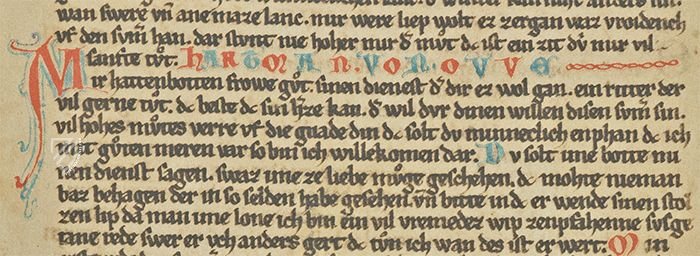 wan swere vn̄ ane maze lanc. mir were liep wolt ez zergan waz vroiden ich
vf den svm̄ han. dar stvnt nie hoher mir d' mv̊t. dc ist ein zit dv̍ mir vil
sanfte tv̊t. HARTMAN. VON OVVE
Mir hat tenbotten frowe gv̊t. sinen dienest d' dir ez wol gan. ein ritter der
vil gerne tv̊t. dc beste dc sin h'ze kan. d' wil dvr dinen willen disen svm̄ sin.
vil hohes mv̊tes verre vf die gnade din dc solt dv minneclich enphan dc ich
mit gv̊ten meren var so bin ich willekomen dar. Dv solt ime botte mi
nen dienst sagen. swaz ime ze liebe mv̊ge geschehen. dc mohte nieman
baz behagen der in so selden habe gesehen. vn̄ bitte in dc er wende sinen stol
zen lip da man ime lone ich bin ein vil vremedez wip zenpfahenne svsge
tane rede swer er vch anders gert dc tv̊n ich wan des ist er wert: Min